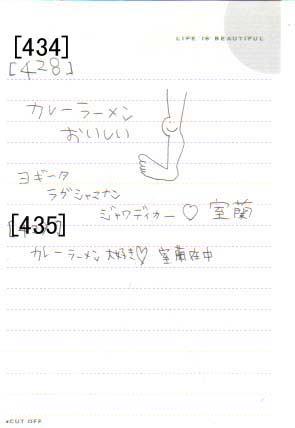 LIFE IS BEAUTIFUL
[434]
[428]
カレーラーメン
おいしい
ヨギータ
ラガシャマナン
ジャワディカー♡ 室蘭
[435]
カレーラーメン大好き♡ 室蘭在中
CUT OFF